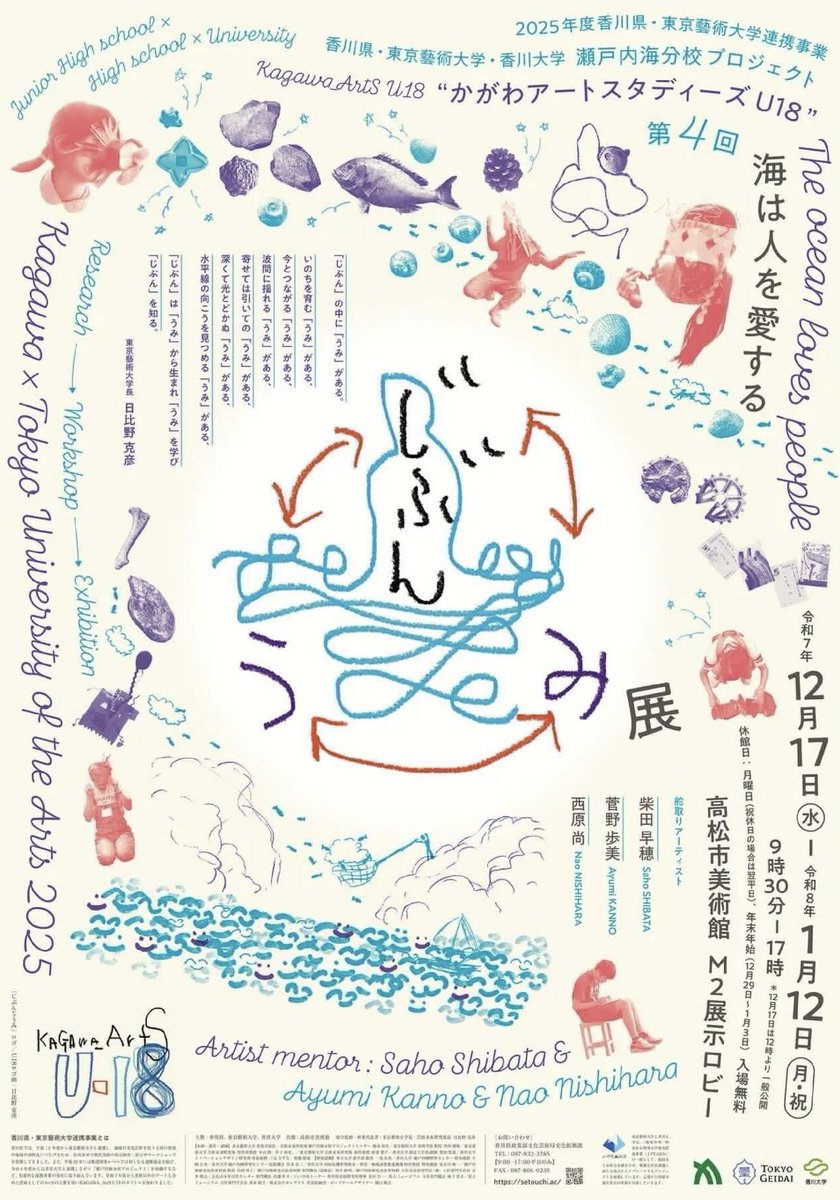 Junior High school ×
High school × University
2025年度香川県・東京藝術大学連携事業
香川県・東京藝術大学・香川大学 瀬戸内海分校プロジェクト
Kagawa_ArtS U18 “かがわアートスタディーズU18”
第4回
海は人を愛する
The ocean loves people
Kagawa × Tokyo University of the Arts 2025
Research → Workshop → Exhibition
「じぶん」の中に「うみ」がある。
いのちを育む「うみ」がある、
今とつながる「うみ」がある、
波間に揺れる「うみ」がある、
寄せては引いての「うみ」がある、
深くて光とどかぬ「うみ」がある、
水平線の向こうを見つめる「うみ」がある、
「じぶん」は「うみ」から生まれ「うみ」を学び
「じぶん」を知る。
東京藝術大学長 日比野 克彦
じぶん
うみ
展
令和7年
12月17日(水)ー令和8年1月12日(月・祝)
9時30分ー17時 *12月17日は12時より一般公開
休館日:月曜日(祝休日の場合は翌平日)、年末年始(12月29日〜1月3日) 入場無料
高松市美術館 M2展示ロビー
舵取りアーティスト
柴田 早穂 Saho SHIBATA
菅野 歩美 Ayumi KANNO
西原 尚 Nao NISHIHARA
Artist mentor : Saho Shibata &
Ayumi Kanno & Nao Nishihara
KAGAWA_ArtS
U-18
香川県・東京藝術大学連携事業とは
[お問い合わせ]
香川県政策部文化芸術局文化振興課
TEL : 087-832-3785
[9:00〜17:00 平日のみ]
FAX : 087-806-0238
https://setouchi.ac/
TOKYO
GEIDAI
香川大学